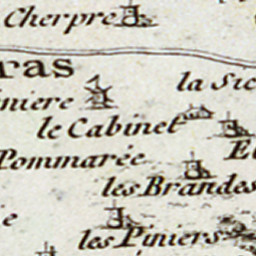 Cherpre
ras
la Sic
niere
le Cabinet
Pommarée
El
les Brandes
e
les Piniers